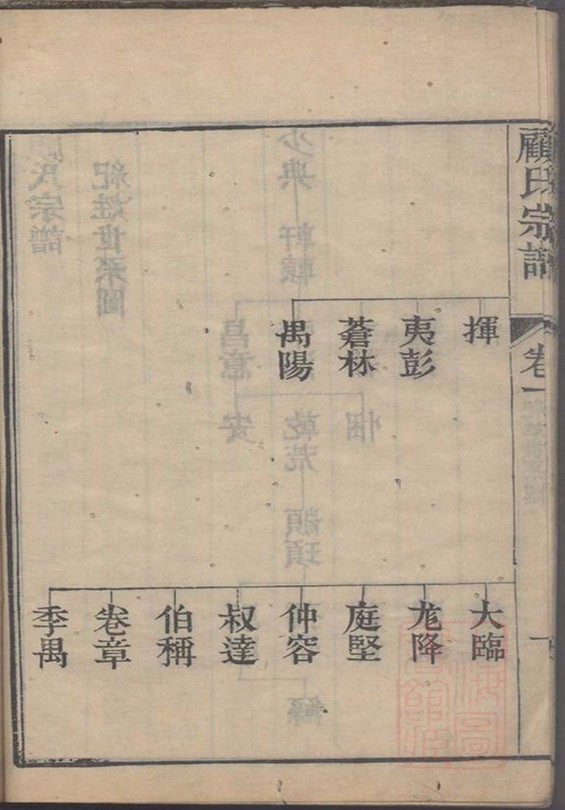 顧氏宗譜
卷一
揮
夷彭
蒼林
禺陽
大臨
尨降
庭堅
仲容
叔達
伯稱
卷章
季禺